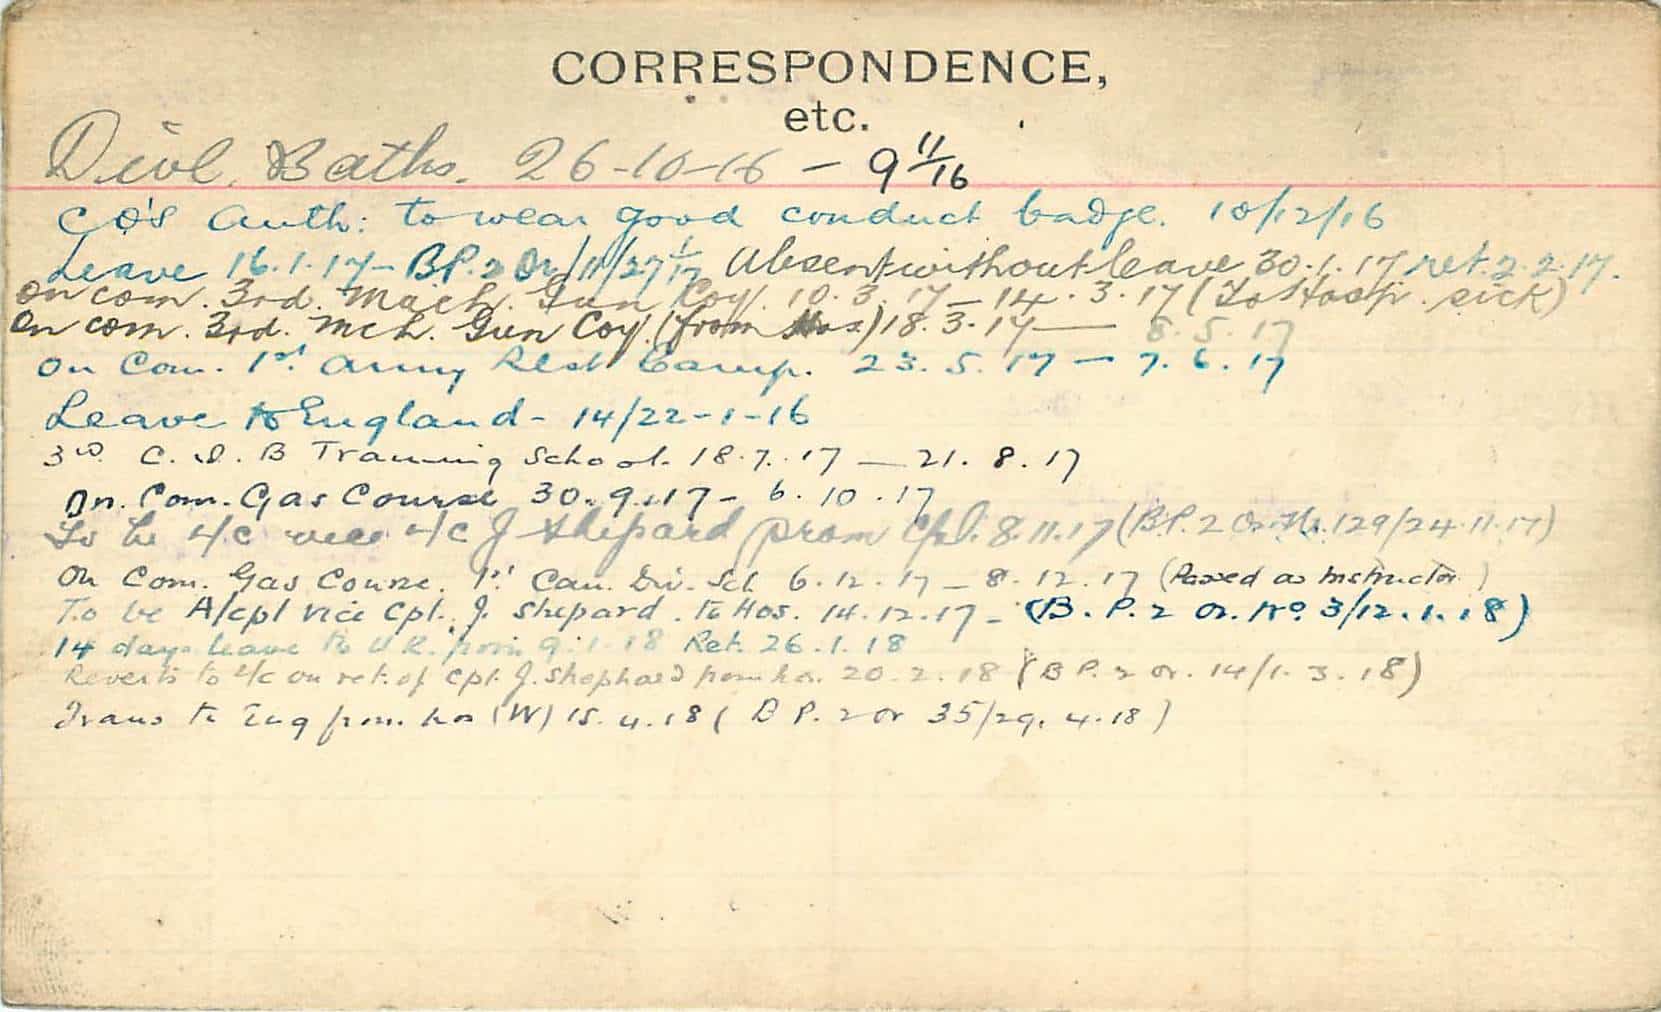 CORRESPONDENCE,
etc.
Divl. Baths. 26-10-16 - 9 11/16
CO's Auth: to wear good conduct badge. 10/12/16
Leave 16.1.17 - BP. 2 Or/11/27 1/17 Absent without leave 30.1.17 ret. 2.2.17.
on com. 3rd. Mach. Gun Coy. 10.3.17 - 14.3.17 (To Hosp. sick)
on com. 3rd. Mch. Gun Coy. (from Hos) 18.3.17 — 8.5.17
on Com. 1st Army Rest Camp. 23.5.17 - 7.6.17
Leave to England - 14/22-1-16
3rd C. I. B Training School. 18.7.17 — 21.8.17
On. Com. Gas Course 30.9.17 - 6.10.17
To be L/C vice L/C J Shepard prom Cpl. 8.11.17 (BP. 2 Or. No. 129/24.11.17)
On Com. Gas Course. 1st Can. Div. Scl 6.12.17 - 8.12.17 (Passed as Instructor)
To be A/cpl vice Cpl. J. Shepard. to Hos. 14.12.17 - (B. P. 2 Or. No. 3/12.1.18)
14 days leave to U K. from 9.1.18 Ret. 26.1.18
Reverts to L/c on ret. of Cpl. J. Shephard from hos. 20.2.18 (B P. 2 or. 14/1.3.18)
Trans to Eng from hos (W) 15.4.18 (B P. 2 or 35/29.4.18)